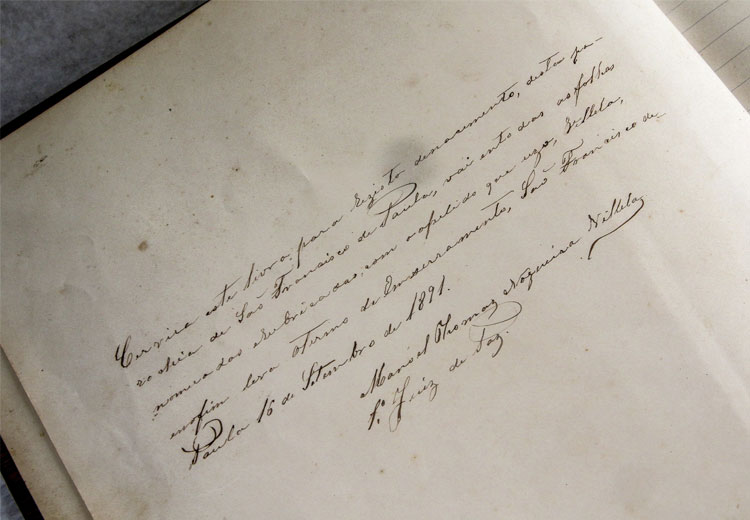 Cervira este livro, para Rezisto denacimento, desta pa-
rochia de São Francisco de Paula, vai entodas as folhas
nomiradas eRubricadas, com o apelido que uzo, Villela,
enofim leva oTermo de Emserramento, São Francisco de
Paula 16 de Setembro de 1891.
Manoel Thomaz Nogueira Villela
1º Juiz de Paz.